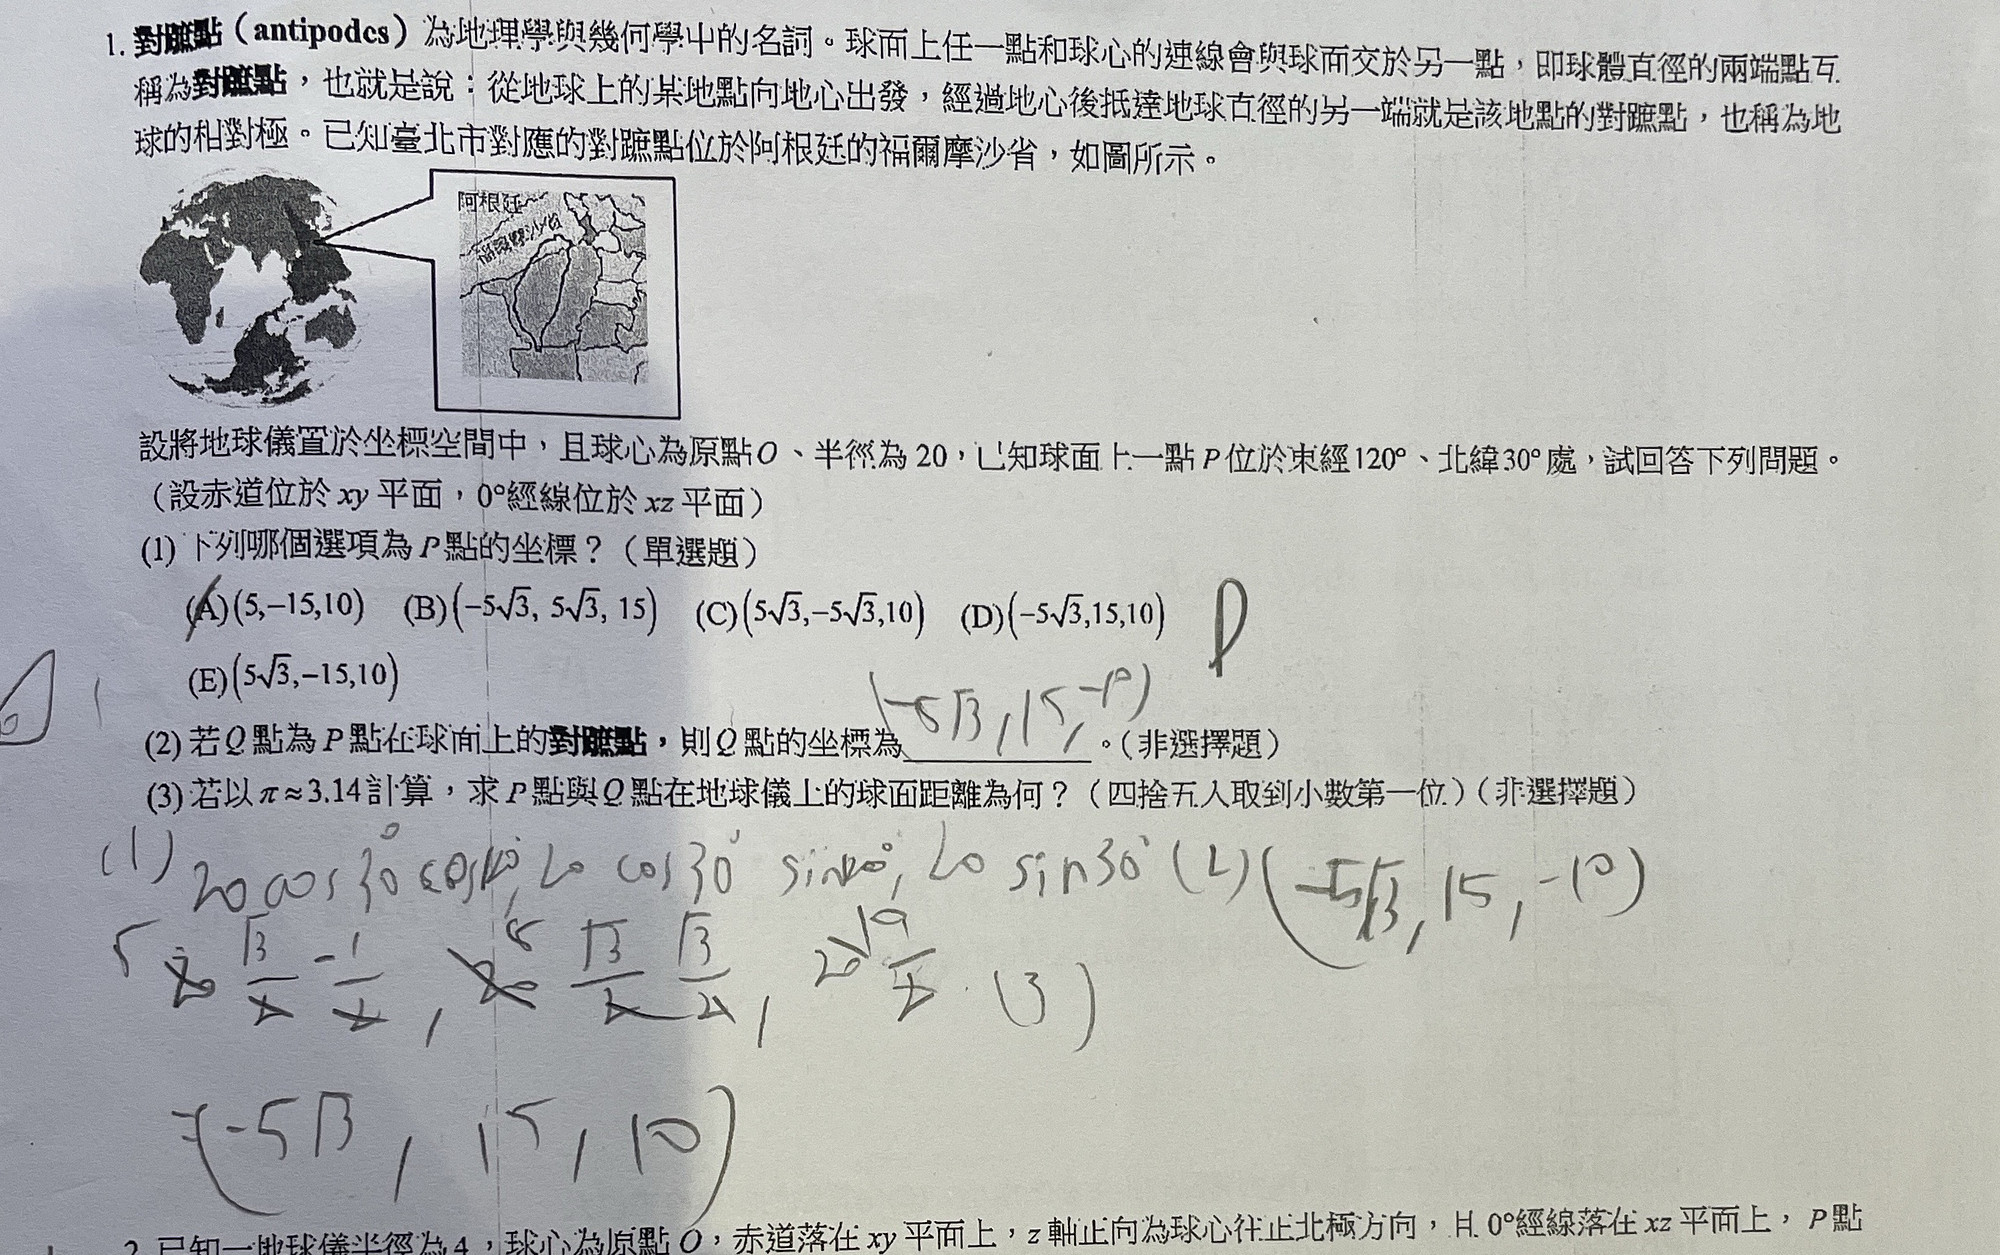 1. 對蹠點（antipodes）為地理學與幾何學中的名詞。球面上任一點和球心的連線會與球面交於另一點，即球體直徑的兩端點互
稱為對蹠點，也就是說：從地球上的某地點向地心出發，經過地心後抵達地球直徑的另一端就是該地點的對蹠點，也稱為地
球的相對極。已知臺北市對應的對蹠點位於阿根廷的福爾摩沙省，如圖所示。
阿根廷
福爾摩沙省
設將地球儀置於坐標空間中，且球心為原點O、半徑為20，已知球面上一點P位於東經120°、北緯30°處，試回答下列問題。
（設赤道位於xy平面，0°經線位於xz平面）
(1) 下列哪個選項為P點的坐標？（單選題）
(A)(5,−15,10) (B)(−5√3, 5√3, 15) (C)(5√3,−5√3,10) (D)(−5√3,15,10) D
(E)(5√3,−15,10)
(−5√3, 15, −10)
(2) 若Q點為P點在球面上的對蹠點，則Q點的坐標為。（非選擇題）
(3) 若以π≈3.14計算，求P點與Q點在地球儀上的球面距離為何？（四捨五入取到小數第一位）（非選擇題）
(1) 20 cos30° cos120°, 20 cos30° sin120°, 20 sin30° (2) (−5√3, 15, −10)
5 20 √3/2 −1/2, 20 5 √3/2 √3/2, 20 10 1/2 (3)
=(−5√3, 15, 10)
2. 已知一地球儀半徑為4，球心為原點O，赤道落在xy平面上，z軸正向為球心往正北極方向，且0°經線落在xz平面上，P點